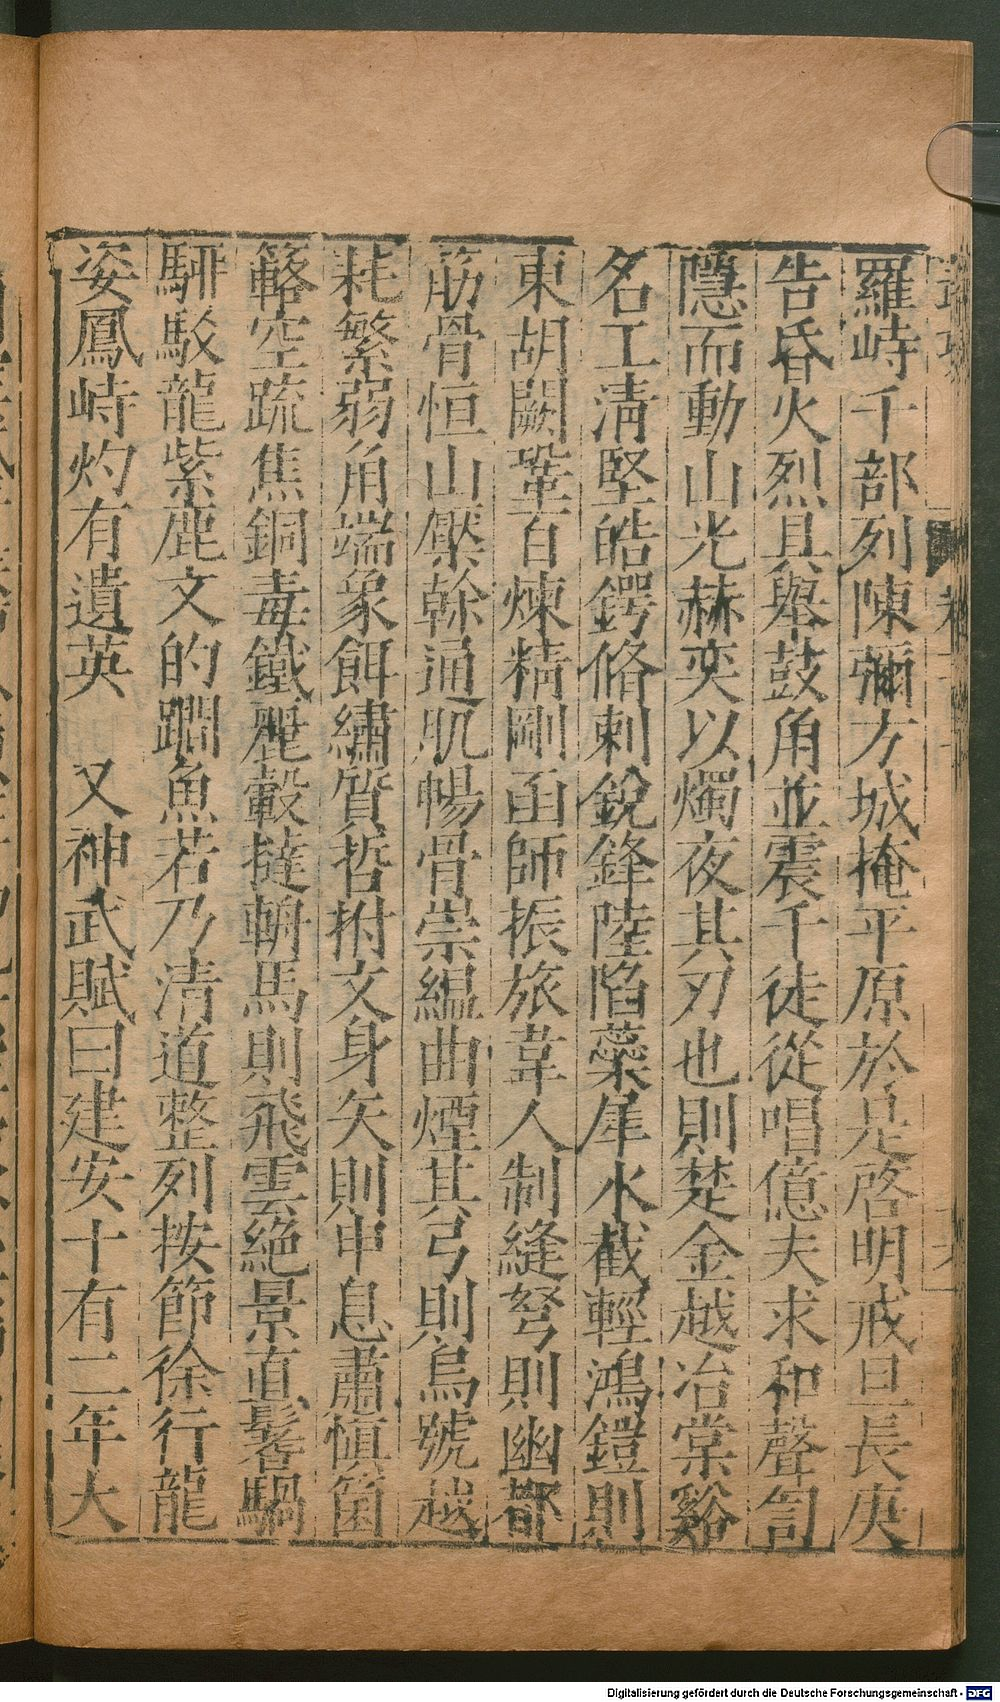 羅峙千部列陳彌方城掩平原於是啓明戒旦長庚
告昏火烈具舉鼓角並震千徒從唱億夫求和聲訇
隱而動山光赫奕以燭夜其刃也則楚金越冶棠谿
名工淸堅皓鍔脩刺銳鋒陸陷蘂犀水截輕鴻鎧則
東胡闕鞏百煉精剛函師振旅韋人制縫弩則幽都
筋骨恒山檿幹通肌暢骨崇縕曲煙其弓則烏號越
耗繁弱角端象餌繡質晢拊文身矢則申息肅愼箘
簵空疏焦銅毒鐵麗轂䡾馬則飛雲絕景直鬐騧
騑駁龍紫鹿文的䮽魚若乃清道整列按節徐行龍
姿鳳峙灼有遺英 又神武賦曰建安十有二年大
Digitalisierung gefördert durch die Deutsche Forschungsgemeinschaft - DFG